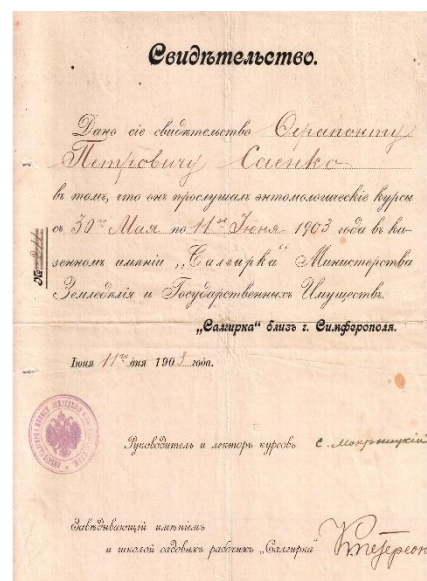 Свидѣтельство.
Дано сіе свидѣтельство Ѳерапонту
Петровичу Саенко
въ томъ, что онъ прослушалъ энтомологическіе курсы
съ 30го Мая по 11ое Іюня 1903 года въ ка-
зенномъ имѣніи „Салгирка“ Министерства
Земледѣлія и Государственныхъ Имуществъ.
№
„Салгирка“ близъ г. Симферополя.
Іюня 11го дня 1903 года.
Руководитель и лекторъ курсовъ С. Мокржецкій
Завѣдывающій имѣніемъ
и школой садовыхъ рабочихъ „Салгирка“